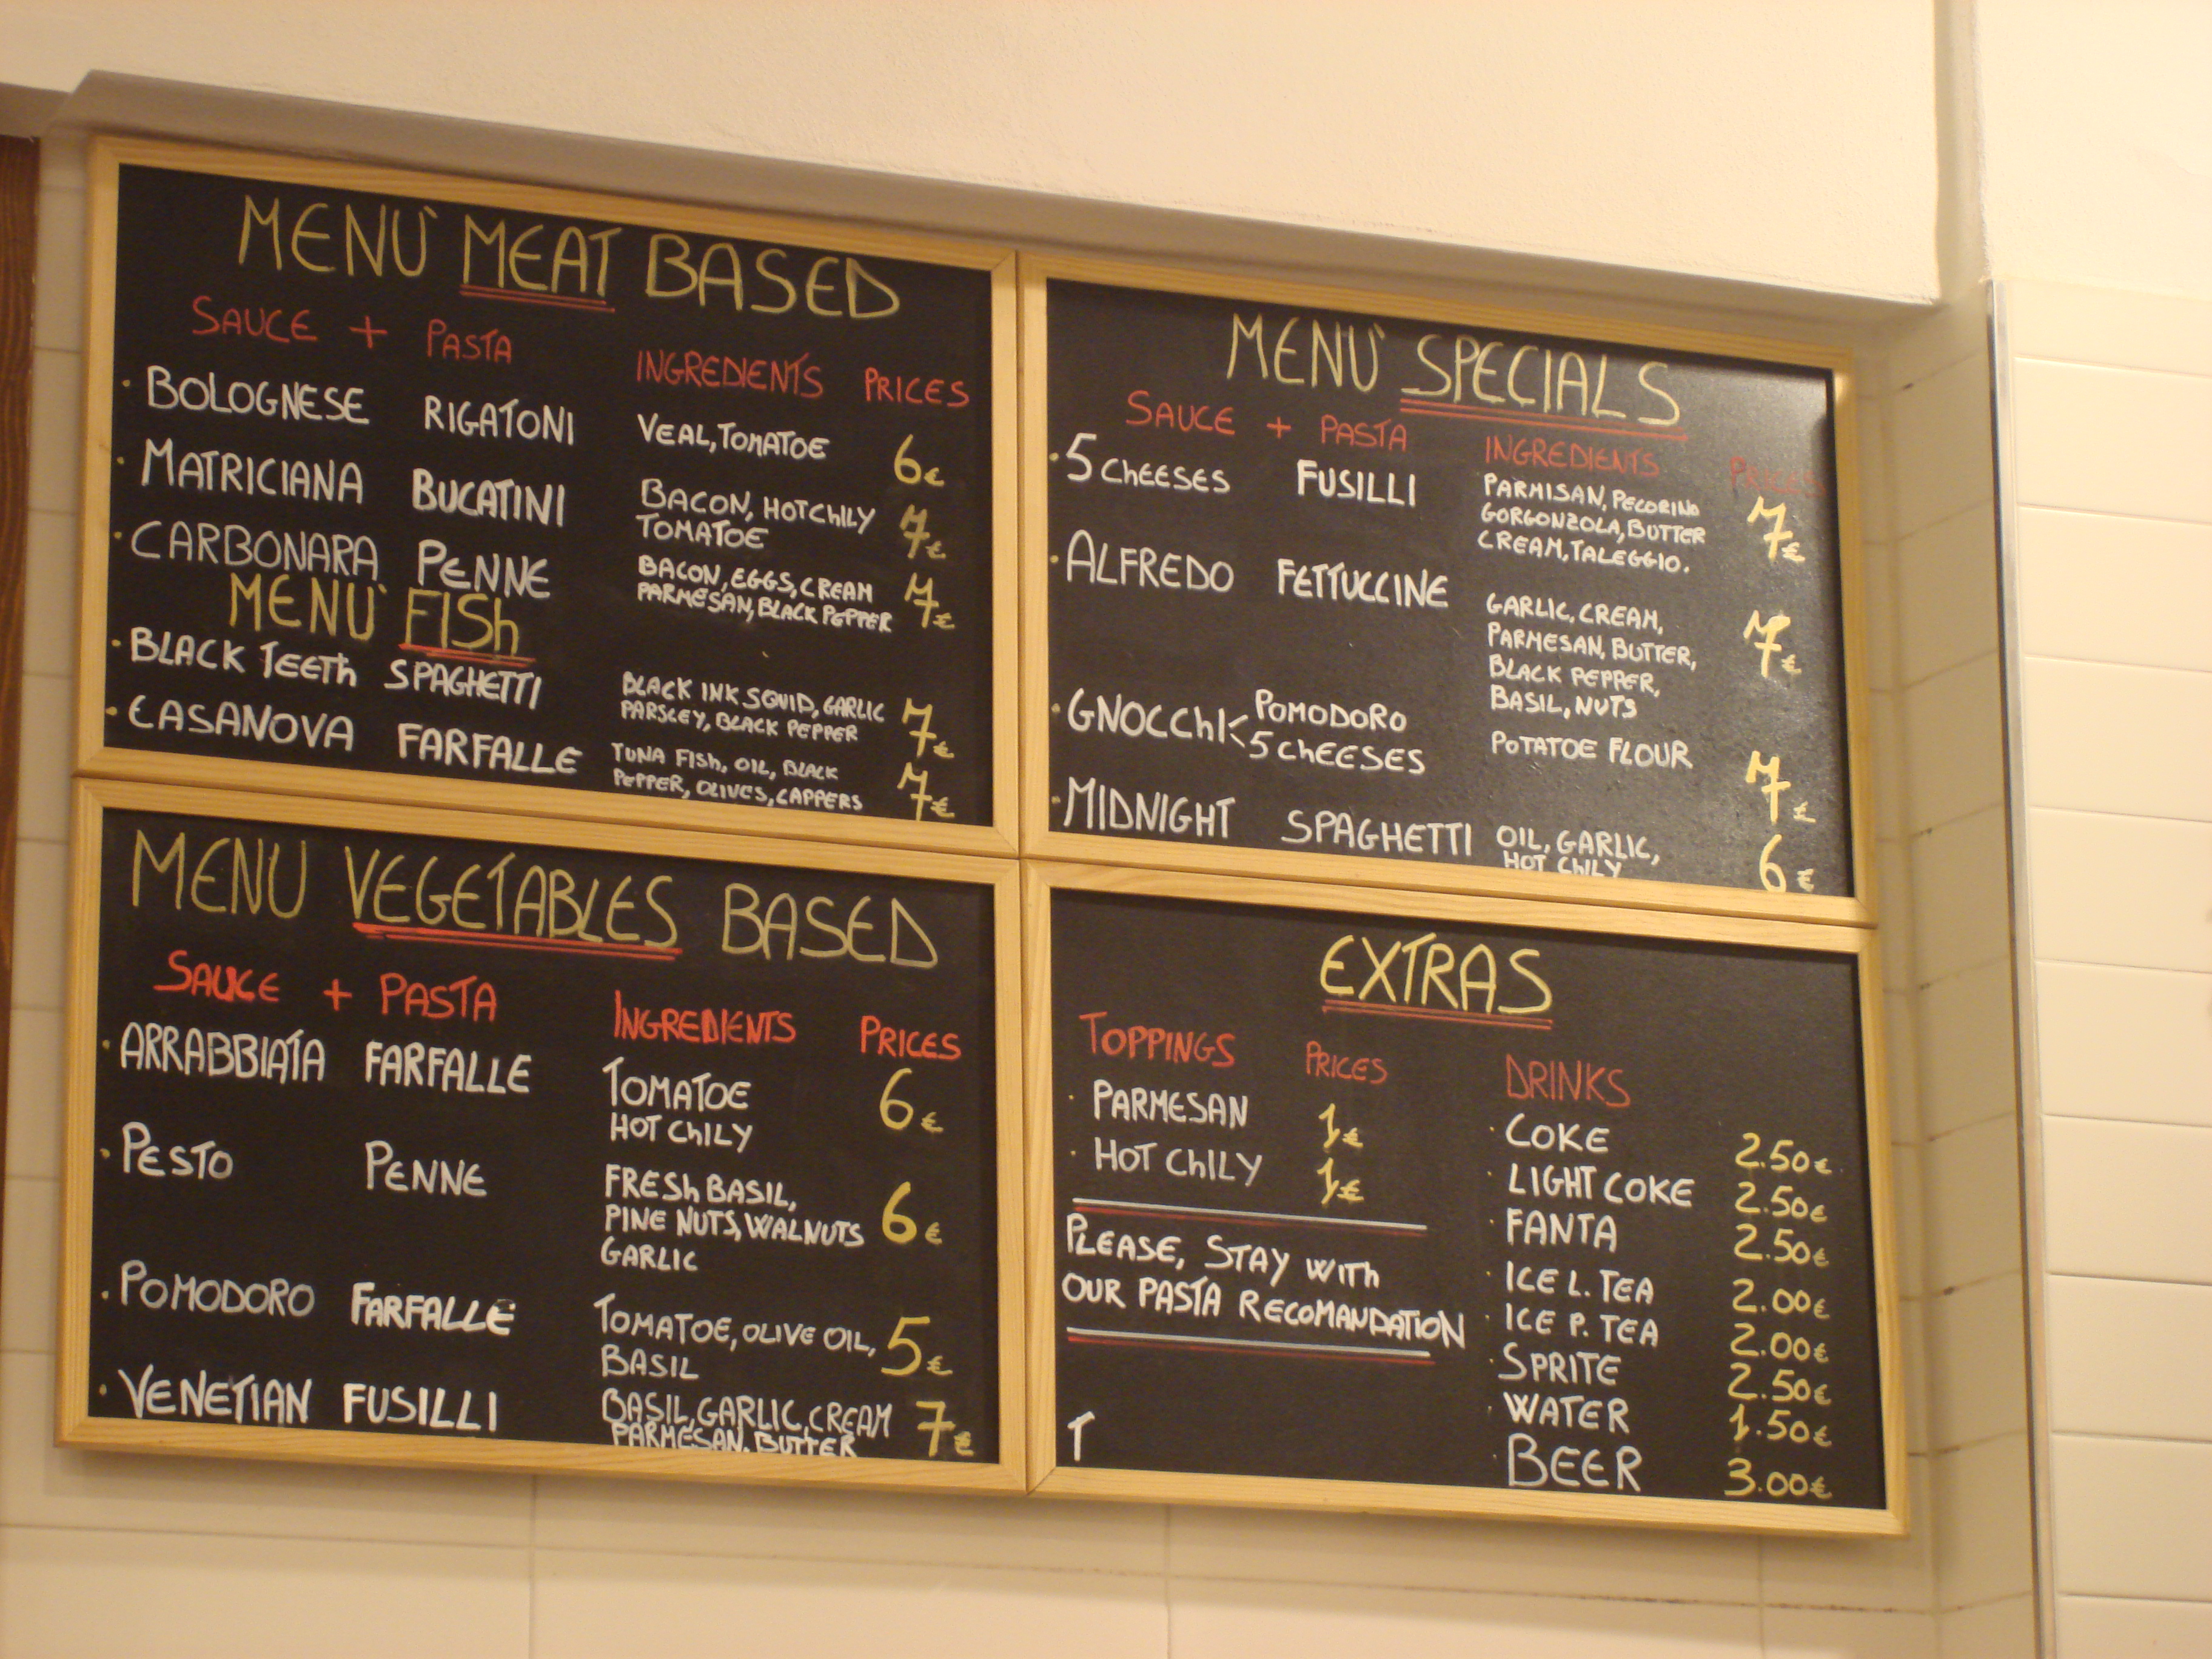 MENU' MEAT BASED
SAUCE + PASTA INGREDIENTS PRICES
· BOLOGNESE RIGATONI VEAL, TOMATOE 6€
· MATRICIANA BUCATINI BACON, HOT ChILY 7€
TOMATOE
· CARBONARA PENNE BACON, EGGS, CREAM 7€
PARMESAN, BLACK PEPPER
MENU' FISh
· BLACK TEETh SPAGHETTI BLACK INK SQUID, GARLIC 7€
PARSLEY, BLACK PEPPER
· CASANOVA FARFALLE TUNA FISh, OIL, BLACK 7€
PEPPER, OLIVES, CAPPERS
MENU VEGETABLES BASED
SAUCE + PASTA INGREDIENTS PRICES
· ARRABBIATA FARFALLE TOMATOE 6€
HOT ChILY
· PESTO PENNE FRESh BASIL, 6€
PINE NUTS, WALNUTS
GARLIC
· POMODORO FARFALLE TOMATOE, OLIVE OIL, 5€
BASIL
· VENETIAN FUSILLI BASIL, GARLIC, CREAM 7€
PARMESAN, BUTTER
MENU' SPECIALS
SAUCE + PASTA INGREDIENTS PRICES
· 5 ChEESES FUSILLI PARMISAN, PECORINO 7€
GORGONZOLA, BUTTER
CREAM, TALEGGIO.
· ALFREDO FETTUCCINE GARLIC, CREAM, 7€
PARMESAN, BUTTER,
BLACK PEPPER,
BASIL, NUTS
· GNOCChI < POMODORO POTATOE FLOUR 7€
5 ChEESES
· MIDNIGHT SPAGHETTI OIL, GARLIC, 6€
HOT ChILY
EXTRAS
TOPPINGS PRICES
· PARMESAN 1€
· HOT ChILY 1€
PLEASE, STAY WITh
OUR PASTA RECOMANDATION
T
DRINKS
· COKE 2.50€
· LIGHT COKE 2.50€
· FANTA 2.50€
· ICE L. TEA 2.00€
· ICE P. TEA 2.00€
· SPRITE 2.50€
· WATER 1.50€
· BEER 3.00€